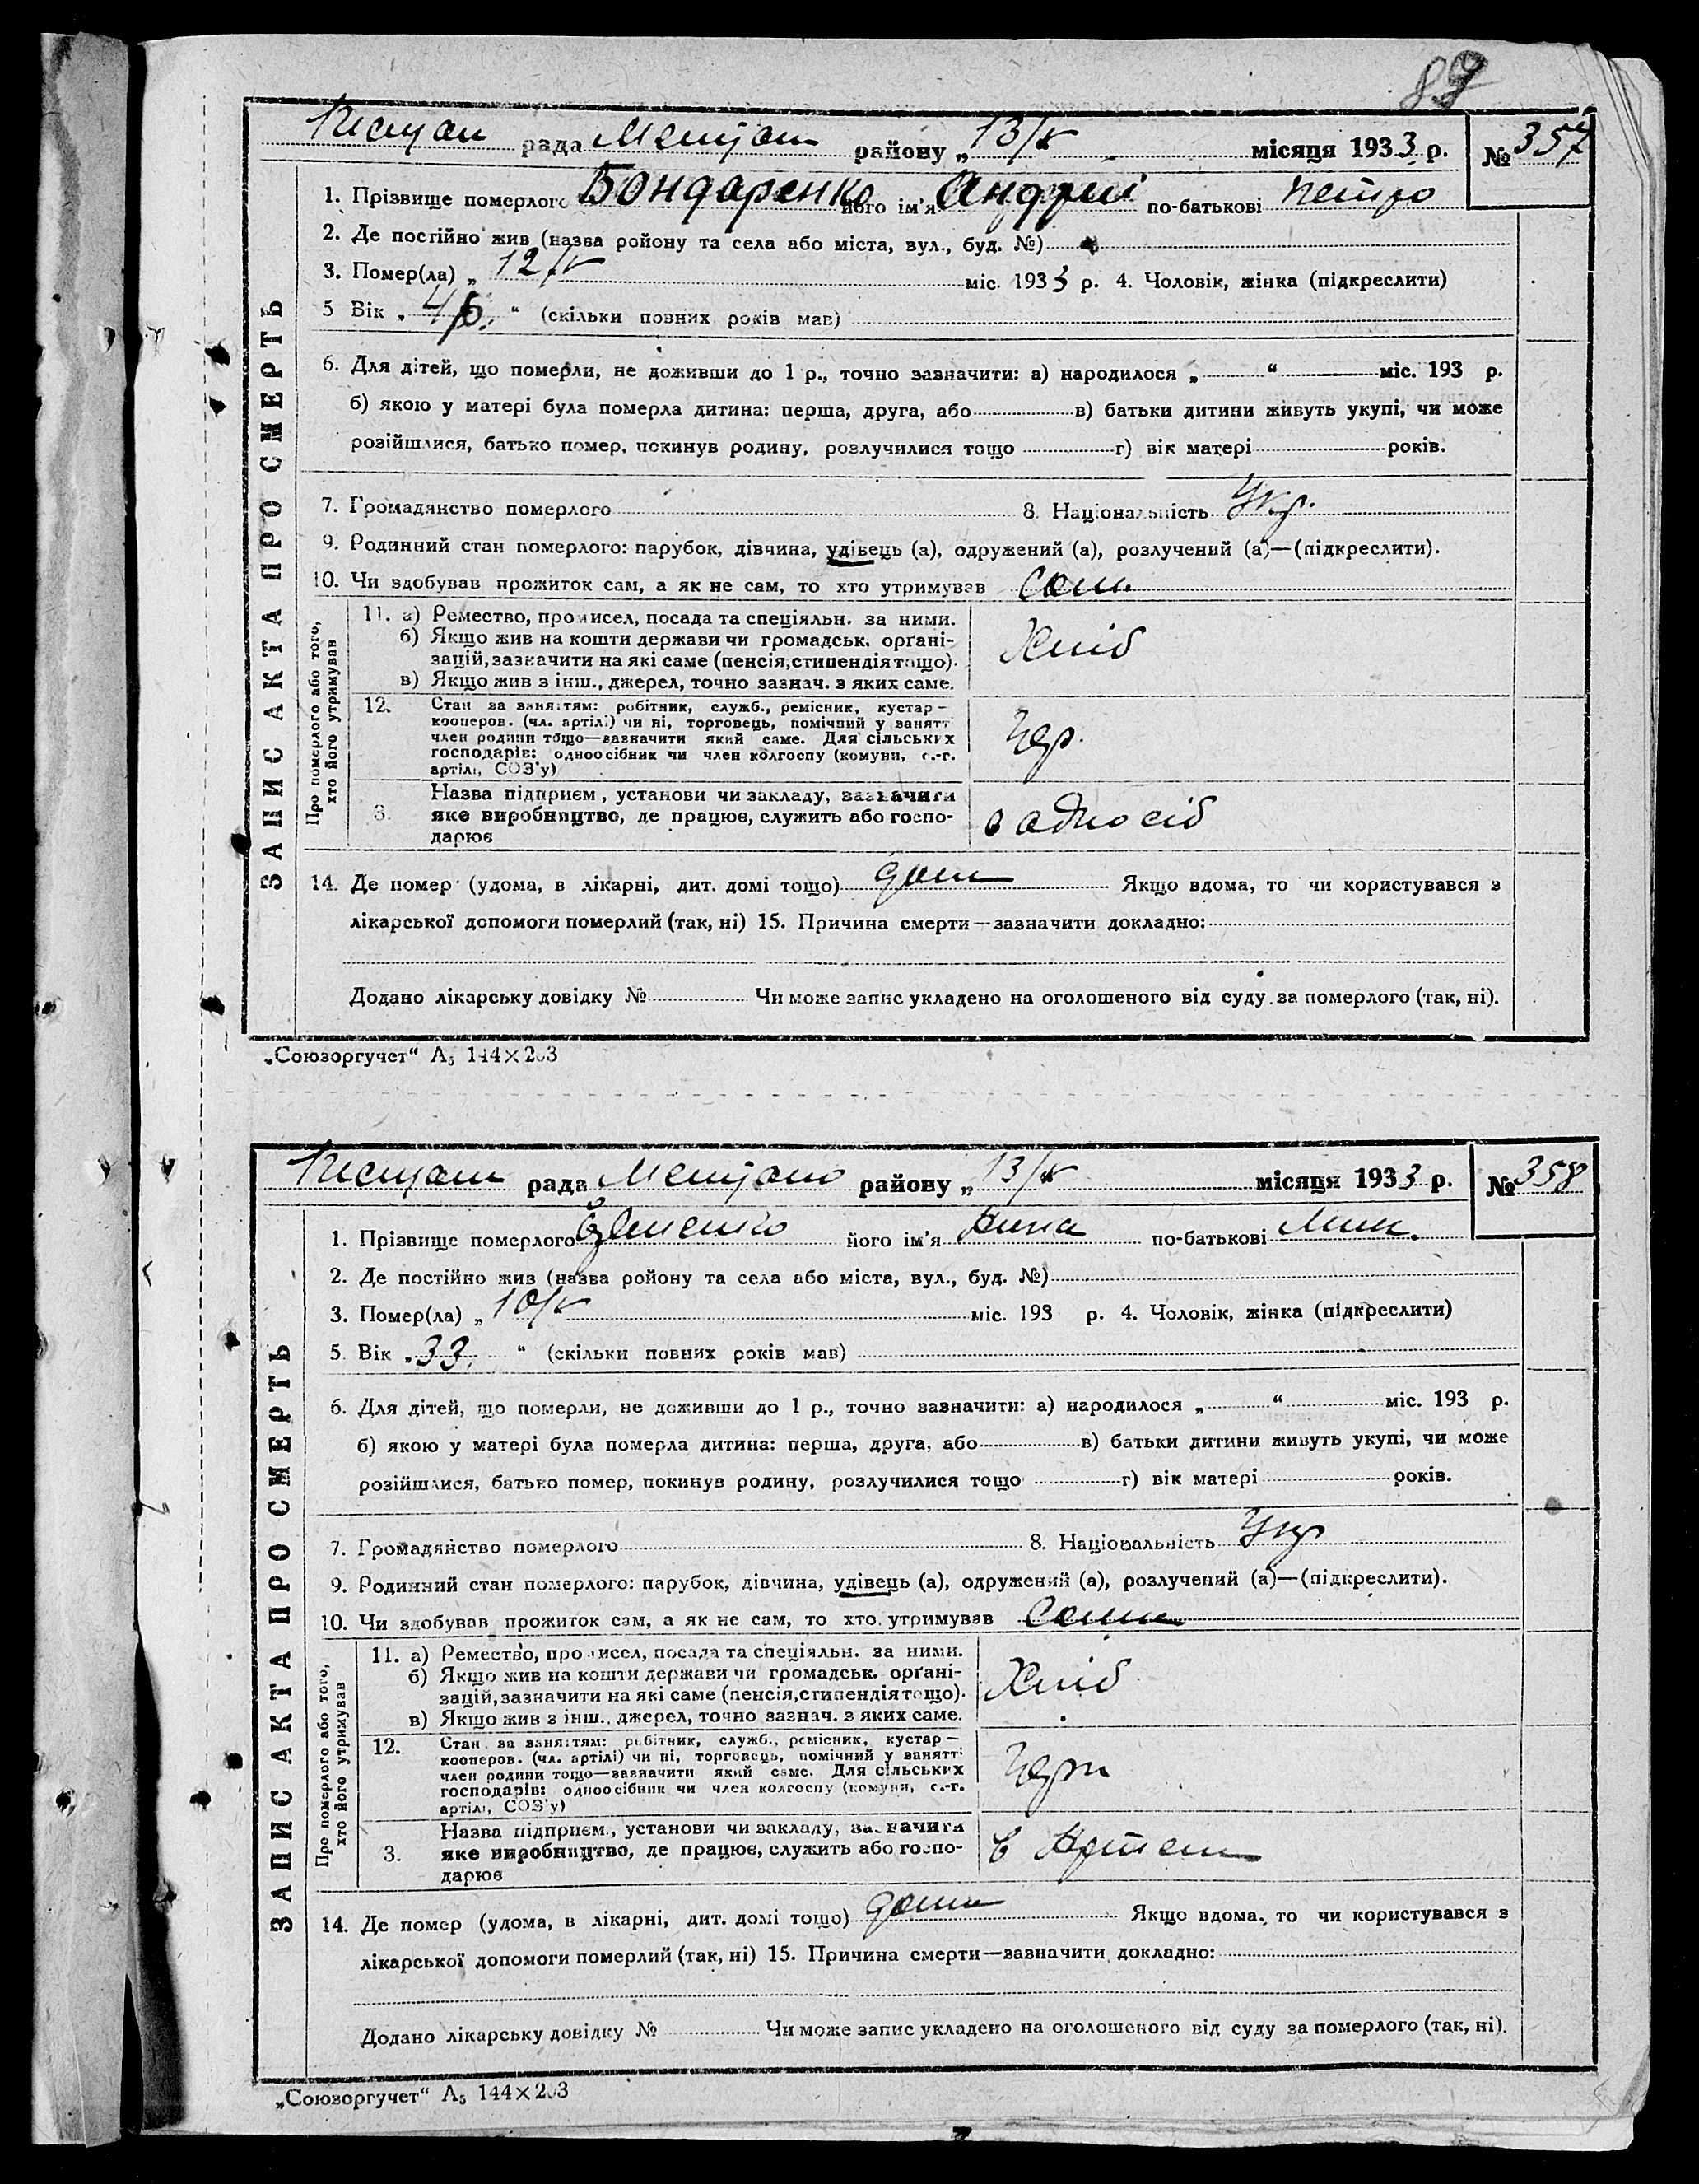 89
рада районy „ 13/V місяця 1933 р. № 357
1. Прізвище померлого Бондаренко його ім'я Андрій по-батькові Петро
2. Де постійно жив (назва ройону та села або міста, вул., буд. №)
3. Помер(ла) „ 12/V міс. 1933 р. 4. Чоловік, жінка (підкреслити)
5 Вік „ “ (скільки повних років мав)
6. Для дітей, що померли, не доживши до 1 р., точно зазначити: а) народилося „ “ міс. 193 р.
б) якою у матері була померла дитина: перша, друга, або в) батьки дитини живуть укупі, чи може
розійшлися, батько помер, покинув родину, розлучилися тощо г) вік матері років.
7. Громадянство померлого 8. Національність Укр.
9. Родинний стан померлого: парубок, дівчина, удівець (а), одружений (а), розлучений (а)—(підкреслити).
10. Чи здобував прожиток сам, а як не сам, то хто утримував Сам
ЗАПИС АКТА ПРО СМЕРТЬ
Про померлого або того, хто його утримував
11. а) Ремество, промисел, посада та спеціяльн. за ними.
б) Якщо жив на кошти держави чи громадськ. орґані-
зацій, зазначити на які саме (пенсія, стипендія тощо).
в) Якщо жив з інш., джерел, точно зазнач. з яких саме.
Хліб
12. Стан за заняттям: робітник, служб., ремісник, кустар—
кооперов. (чл. артілі) чи ні, торговець, помічний у занятт
член родини тощо—зазначити який саме. Для сільських
господарів: одноосібник чи член колгоспу (комуни, с.-г.
артілі, СОЗ'у)
3. Назва підприєм., установи чи закладу, зазначити
яке виробництво, де працює, служить або госпо-
дарює
одноосіб
14. Де помер (удома, в лікарні, дит. домі тощо) дома Якщо вдома, то чи користувався з
лікарської допомоги померлий (так, ні) 15. Причина смерти—зазначити докладно:
Додано лікарську довідку № Чи може запис укладено на оголошеного від суду за померлого (так, ні).
„Союзоргучет“ А5 144×203
рада району „ 13/V місяця 1933 р. № 358
1. Прізвище померлого його ім'я по-батькові
2. Де постійно жив (назва ройону та села або міста, вул., буд. №)
3. Помер(ла) „ 10/V міс. 193 р. 4. Чоловік, жінка (підкреслити)
5. Вік „ 33. “ (скільки повних років мав)
6. Для дітей, що померли, не доживши до 1 р., точно зазначити: а) народилося „ “ міс. 193 р.
б) якою у матері була померла дитина: перша, друга, або в) батьки дитини живуть укупі, чи може
розійшлися, батько помер, покинув родину, розлучилися тощо г) вік матері років.
7. Громадянство померлого 8. Національність Укр
9. Родинний стан померлого: парубок, дівчина, удівець (а), одружений (а), розлучений (а)—(підкреслити).
10. Чи здобував прожиток сам, а як не сам, то хто утримував Сама
ЗАПИС АКТА ПРО СМЕРТЬ
Про померлого або того, хто його утримував
11. а) Ремество, промисел, посада та спеціяльн. за ними.
б) Якщо жив на кошти держави чи громадськ. орґані-
зацій, зазначити на які саме (пенсія, стипендія тощо).
в) Якщо жив з інш., джерел, точно зазнач. з яких саме.
Хліб
12. Стан за заняттям: робітник, служб., ремісник, кустар—
кооперов. (чл. артілі) чи ні, торговець, помічний у занятт
член родини тощо—зазначити який саме. Для сільських
господарів: одноосібник чи член колгоспу (комуни, с.-г.
артілі, СОЗ'у)
3. Назва підприєм., установи чи закладу, зазначити
яке виробництво, де працює, служить або госпо-
дарює
в Артем
14. Де помер (удома, в лікарні, дит. домі тощо) дома Якщо вдома, то чи користувався з
лікарської допомоги померлий (так, ні) 15. Причина смерти—зазначити докладно:
Додано лікарську довідку № Чи може запис укладено на оголошеного від суду за померлого (так, ні).
„Союзоргучет“ А5 144×203